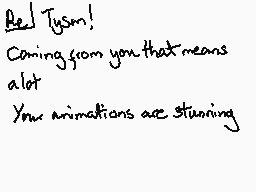 Re/ Tysm!
Coming from you that means
alot
Your animations are stunning